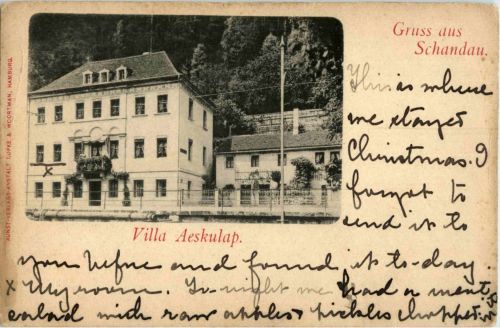 Gruss aus
Schandau.
KUNST-VERLAGS-ANSTALT & MOORTMAN, HAMBURG.
Villa Aeskulap.
x
This is where
we stayed
Christmas. I
forgot to
send it to
you before and found it to-day.
x My room. To-night we had a meat
salad with raw apples pickles chopped